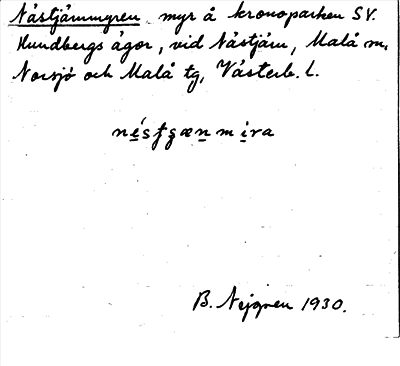 Nästjärnmyren myr å kronoparken SV.
Hundbergs ägor, vid Nästjärn, Malå m,
Norsjö och Malå tg, Västerb. l.
B. Nejgren 1930.